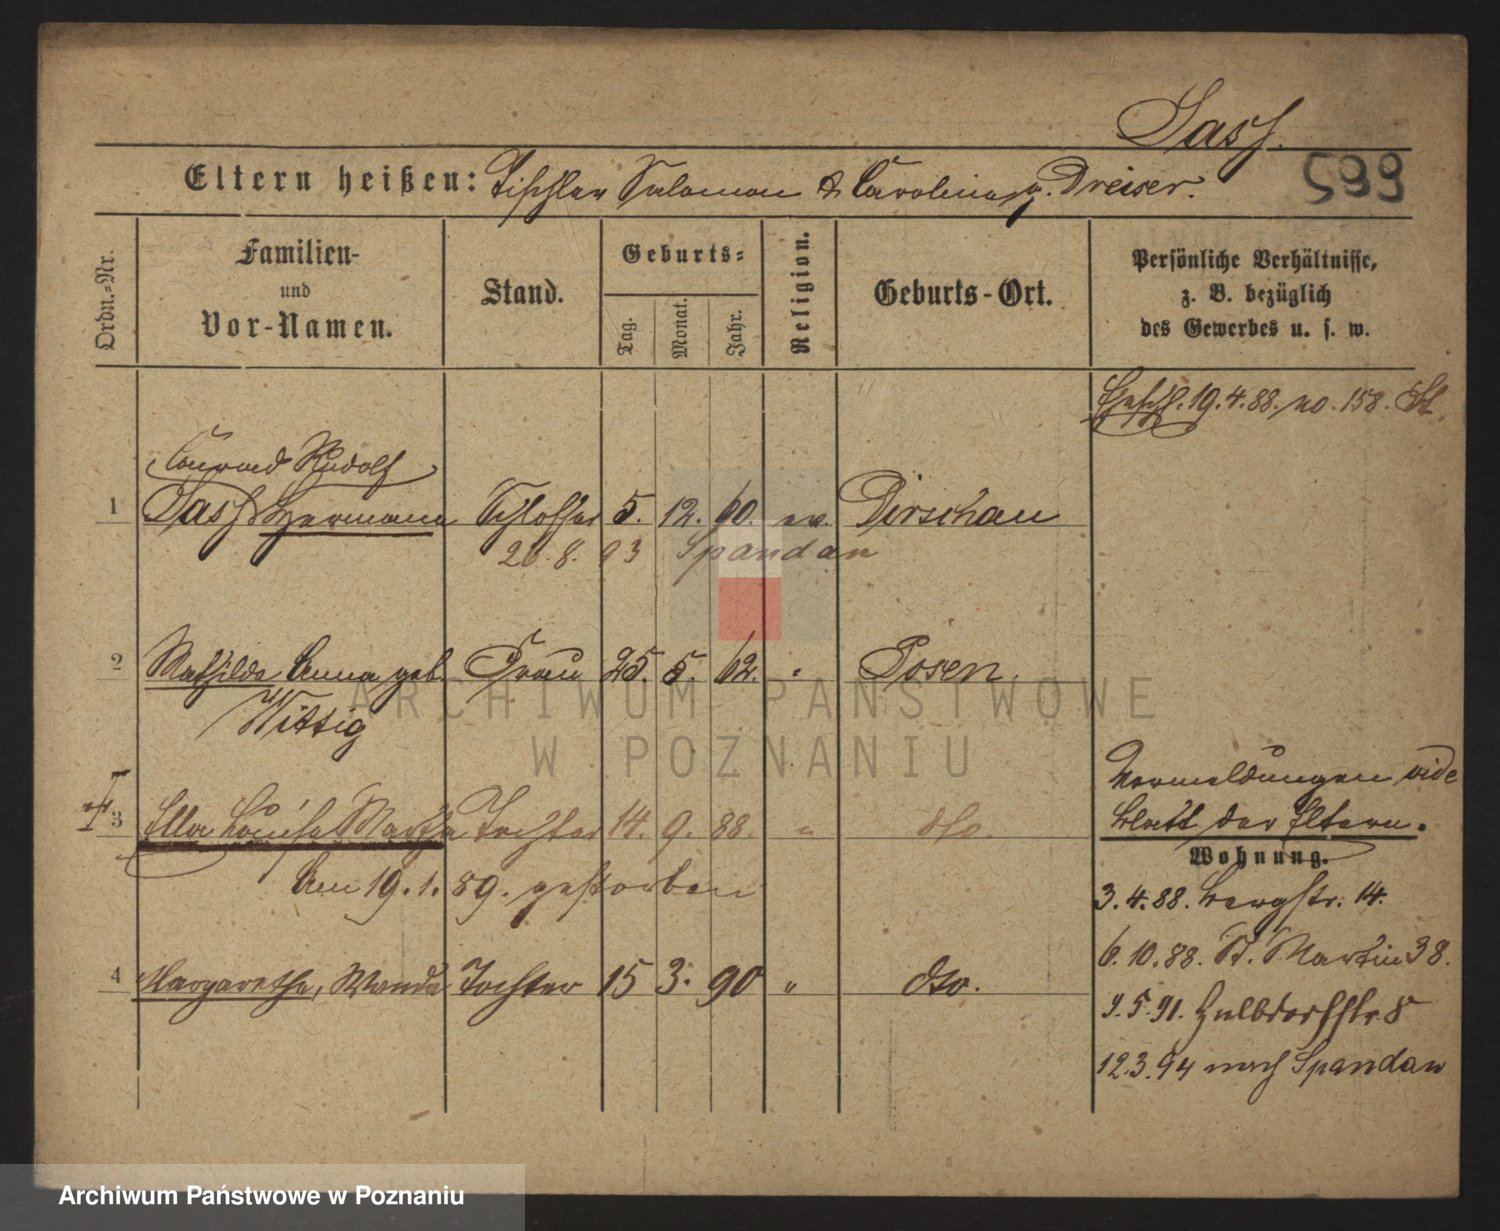 Sass.
Eltern heißen: Tischler Salomon & Carolina g. Dreiser.
599
Ordn.-Nr.
Familien-
und
Vor-Namen.
Stand.
Geburts-
Tag.
Monat.
Jahr.
Religion.
Geburts-Ort.
Persönliche Verhältnisse,
z. B. bezüglich
des Gewerbes u. s. w.
19.4.88. no. 158.
Conrad Rudolf
1 Sass Hermann Schlosser 5. 12. 60. ev. Dirschau
26. 8. 93 Spandau
2 Mathilde Anna geb. Frau 25. 5. 62. " Posen.
Wittig
3 Ella Louise Martha Tochter 14. 9. 88. " dto.
Am 19. 1. 89. gestorben
4 Margarethe, Wanda Tochter 15 3. 90 " dto.
Vormeldungen vide
Blatt der Eltern.
Wohnung.
3.4.88. Bergstr. 14.
6.10.88. St. Martin 38.
9.5.91. Halbdorfstr. 8
12.3.94 nach Spandau
ARCHIWUM PAŃSTWOWE
W POZNANIU
Archiwum Państwowe w Poznaniu